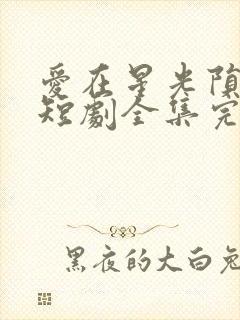 愛在星光隕
短劇全集完
黑夜的大白兔